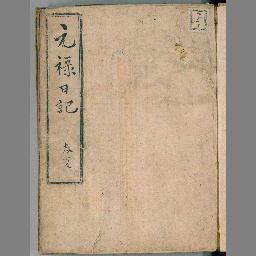 元禄日記